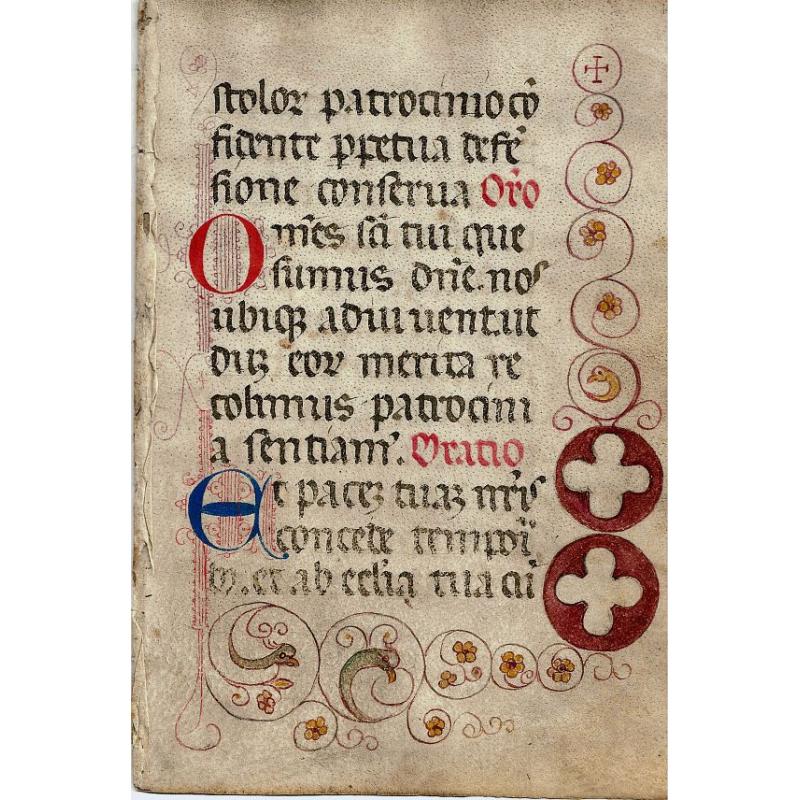 stoloꝝ patrocinio cō
fidente ꝑpetua defē
sione conserua Or̄o
Om̄es sc̄i tui que
sumus dn̄e. nos
ubiqꝫ adiuuent. ut
duꝫ eoꝝ merita re
colimus patrocini
a sentiam᷒. Oratio
Et paceꝫ tuaꝫ nr̄is
concede tempori
bꝫ. et ab ecl̄ia tua cū